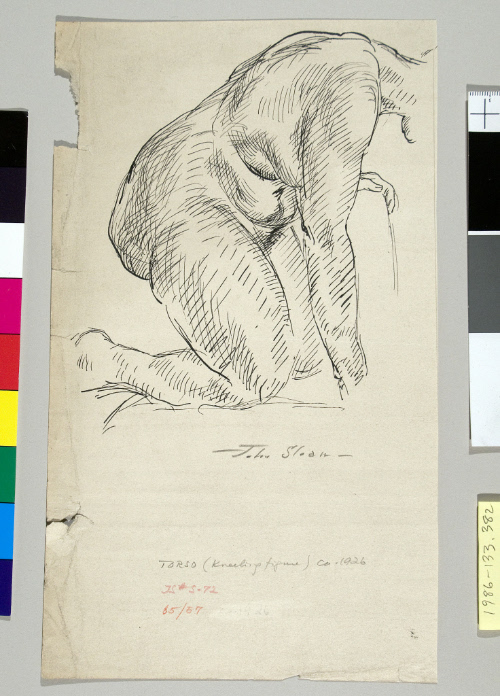 John Sloan
TORSO (Kneeling figure) ca. 1926
JS # S-72
65/57
1986-133.382